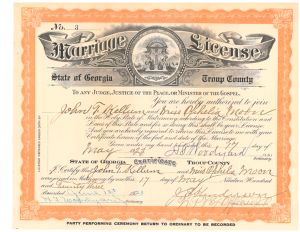 No. 3
Marriage License
State of Georgia Troup County
TO ANY JUDGE, JUSTICE OF THE PEACE, OR MINISTER OF THE GOSPEL.
You are hereby authorized to join
John T. Kellum and Miss Ophelia Moon
in the Holy State of Matrimony according to the Constitution and
Laws of this State and for so doing this shall be your
And you are hereby required to return this License to me with your
Certificate hereon of the fact and date of the Marriage.
Given under my hand and seal this 17 day of
May
STATE OF GEORGIA CERTIFICATE TROUP COUNTY
I Certify that John T. Kellum and Miss Ophelia Moon
were joined in Matrimony by me this 17 day of May Nineteen Hundred
and Twenty three
Recorded
PARTY PERFORMING CEREMONY RETURN TO ORDINARY TO BE RECORDED